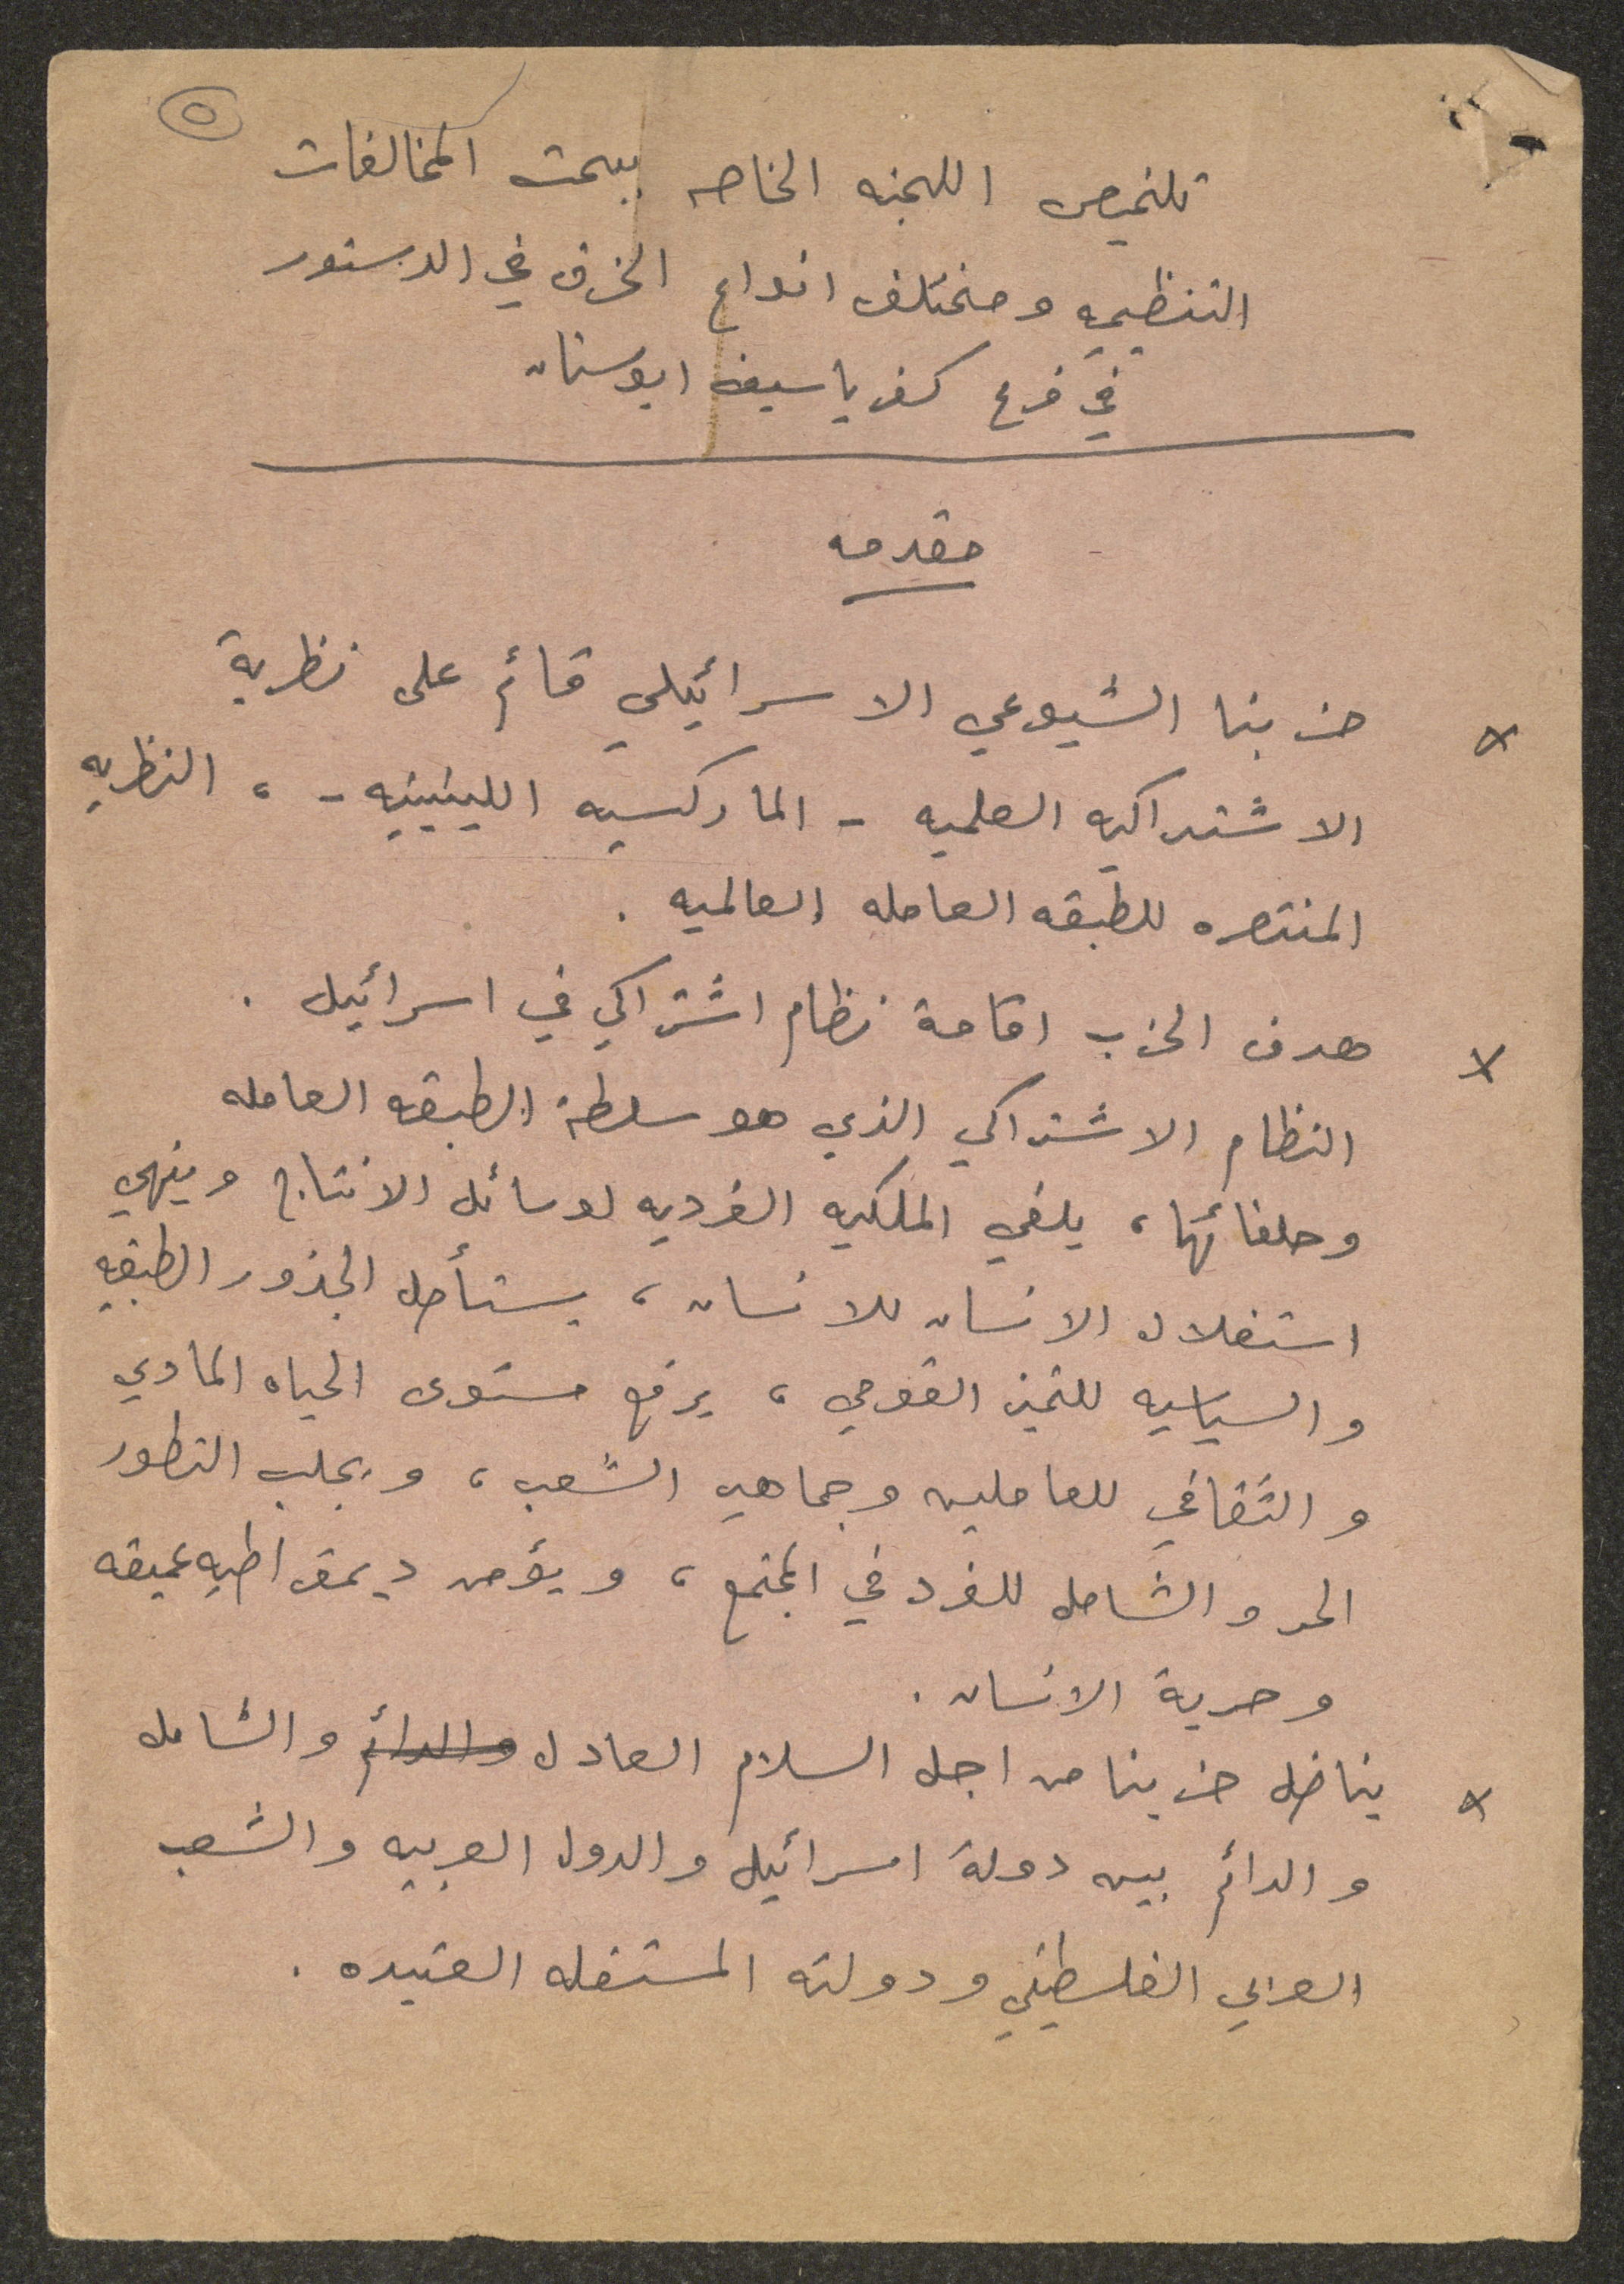 ٥
تلخيص اللجنه الخاصه ببحث المخالفات
التنظيميه ومختلف انواع الخرق في الدستور
في فرع كفر ياسيف ابوسنان
مقدمه
x حزبنا الشيوعي الاسرائيلي قائم على نظرية
الاشتراكيه العلميه - الماركسيه اللينينيه - ، النظريه
المنتصره للطبقه العامله العالميه .
x هدف الحزب اقامة نظام اشتراكي في اسرائيل .
النظام الاشتراكي الذي هو سلطة الطبقه العامله
وحلفائها ، يلغي الملكيه الفرديه لوسائل الانتاج وينهي
استغلال الانسان للانسان ، يستأصل الجذور الطبقيه
والسياسيه للتميز القومي ، يرفع مستوى الحياه المادي
والثقافي للعاملين وجماهير الشعب ، ويجلب التطور
الحر والشامل للفرد في المجتمع ، ويؤمن ديمقراطيه عميقه
وحرية الانسان .
x يناضل حزبنا من اجل السلام العادل والدائم والشامل
والدائم بين دولة اسرائيل والدول العربيه والشعب
العربي الفلسطيني ودولته المستقله العتيده .